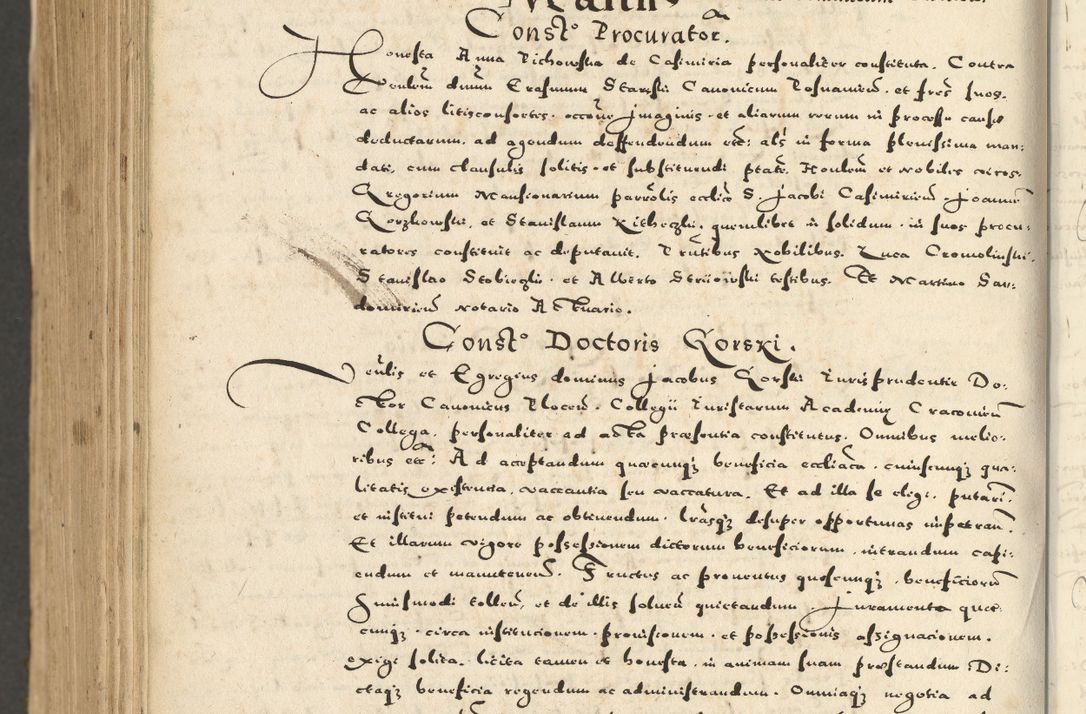 Const° Procurator̃.
Honesta Anna Pichowska de Casimiria personaliter constituta. Contra
Venlem dnum Erasmum Staxski Canonicum Posnanien. et fres suos.
ac alios litisconsortes. occone Imaginis. et aliarum rerum in processu cause
deductarum, ad agendum deffendendum etc: als in forma plenissima man:
dati, cum clausulis solitis. et substituendi ptate. Honlem et Nobiles viros.
Gregorium Mansionarium parrolis ecclie S. Jacobi Casimirien. Joannem
Gorzkowski, et Stanislaum Kitheczki, quemlibet in solidum. in suos procu:
ratores constituit ac deputavit. Pntibus Nobilibus. Luca Cromolinski.
Stanislao Stobiezki. et Alberto Striiowski testibus. Et Martino San:
domirien Notario Actuario.
Const° Doctoris Gorski.
Venlis et Egregius dominus Jacobus Gorski Iurisprudentie Do:
ctor Canonicus Plocen. Collegii Iuristarum Academiæ Cracovien
Collega, personaliter ad acta præsentia constitutus. Omnibus melio:
ribus etc: Ad acceptandum quæcunqz beneficia ecclìaca. cuiuscunqz qua:
litatis existentia. vaccantia seu vaccatura. Et ad illa se eligi. putari.
et institui petendum ac obtinendum. lrasqz desuper opportunas impetran.
Et illarum vigore possessionem dictorum beneficiorum. intrandum capi:
endum et manutenen. Fructus ac proventus quoscunqz. beneficiorum
Huiusmodi tollen, et de illis solven quietandum Juramenta quæ
cunqz. circa institucionem. provisionem. et possessionis assignacionem.
exigi solita. licita tamen et honesta. in animam suam præstandum Di:
ctaqz beneficia regendum ac administrandum. Omniaqz negotia ad